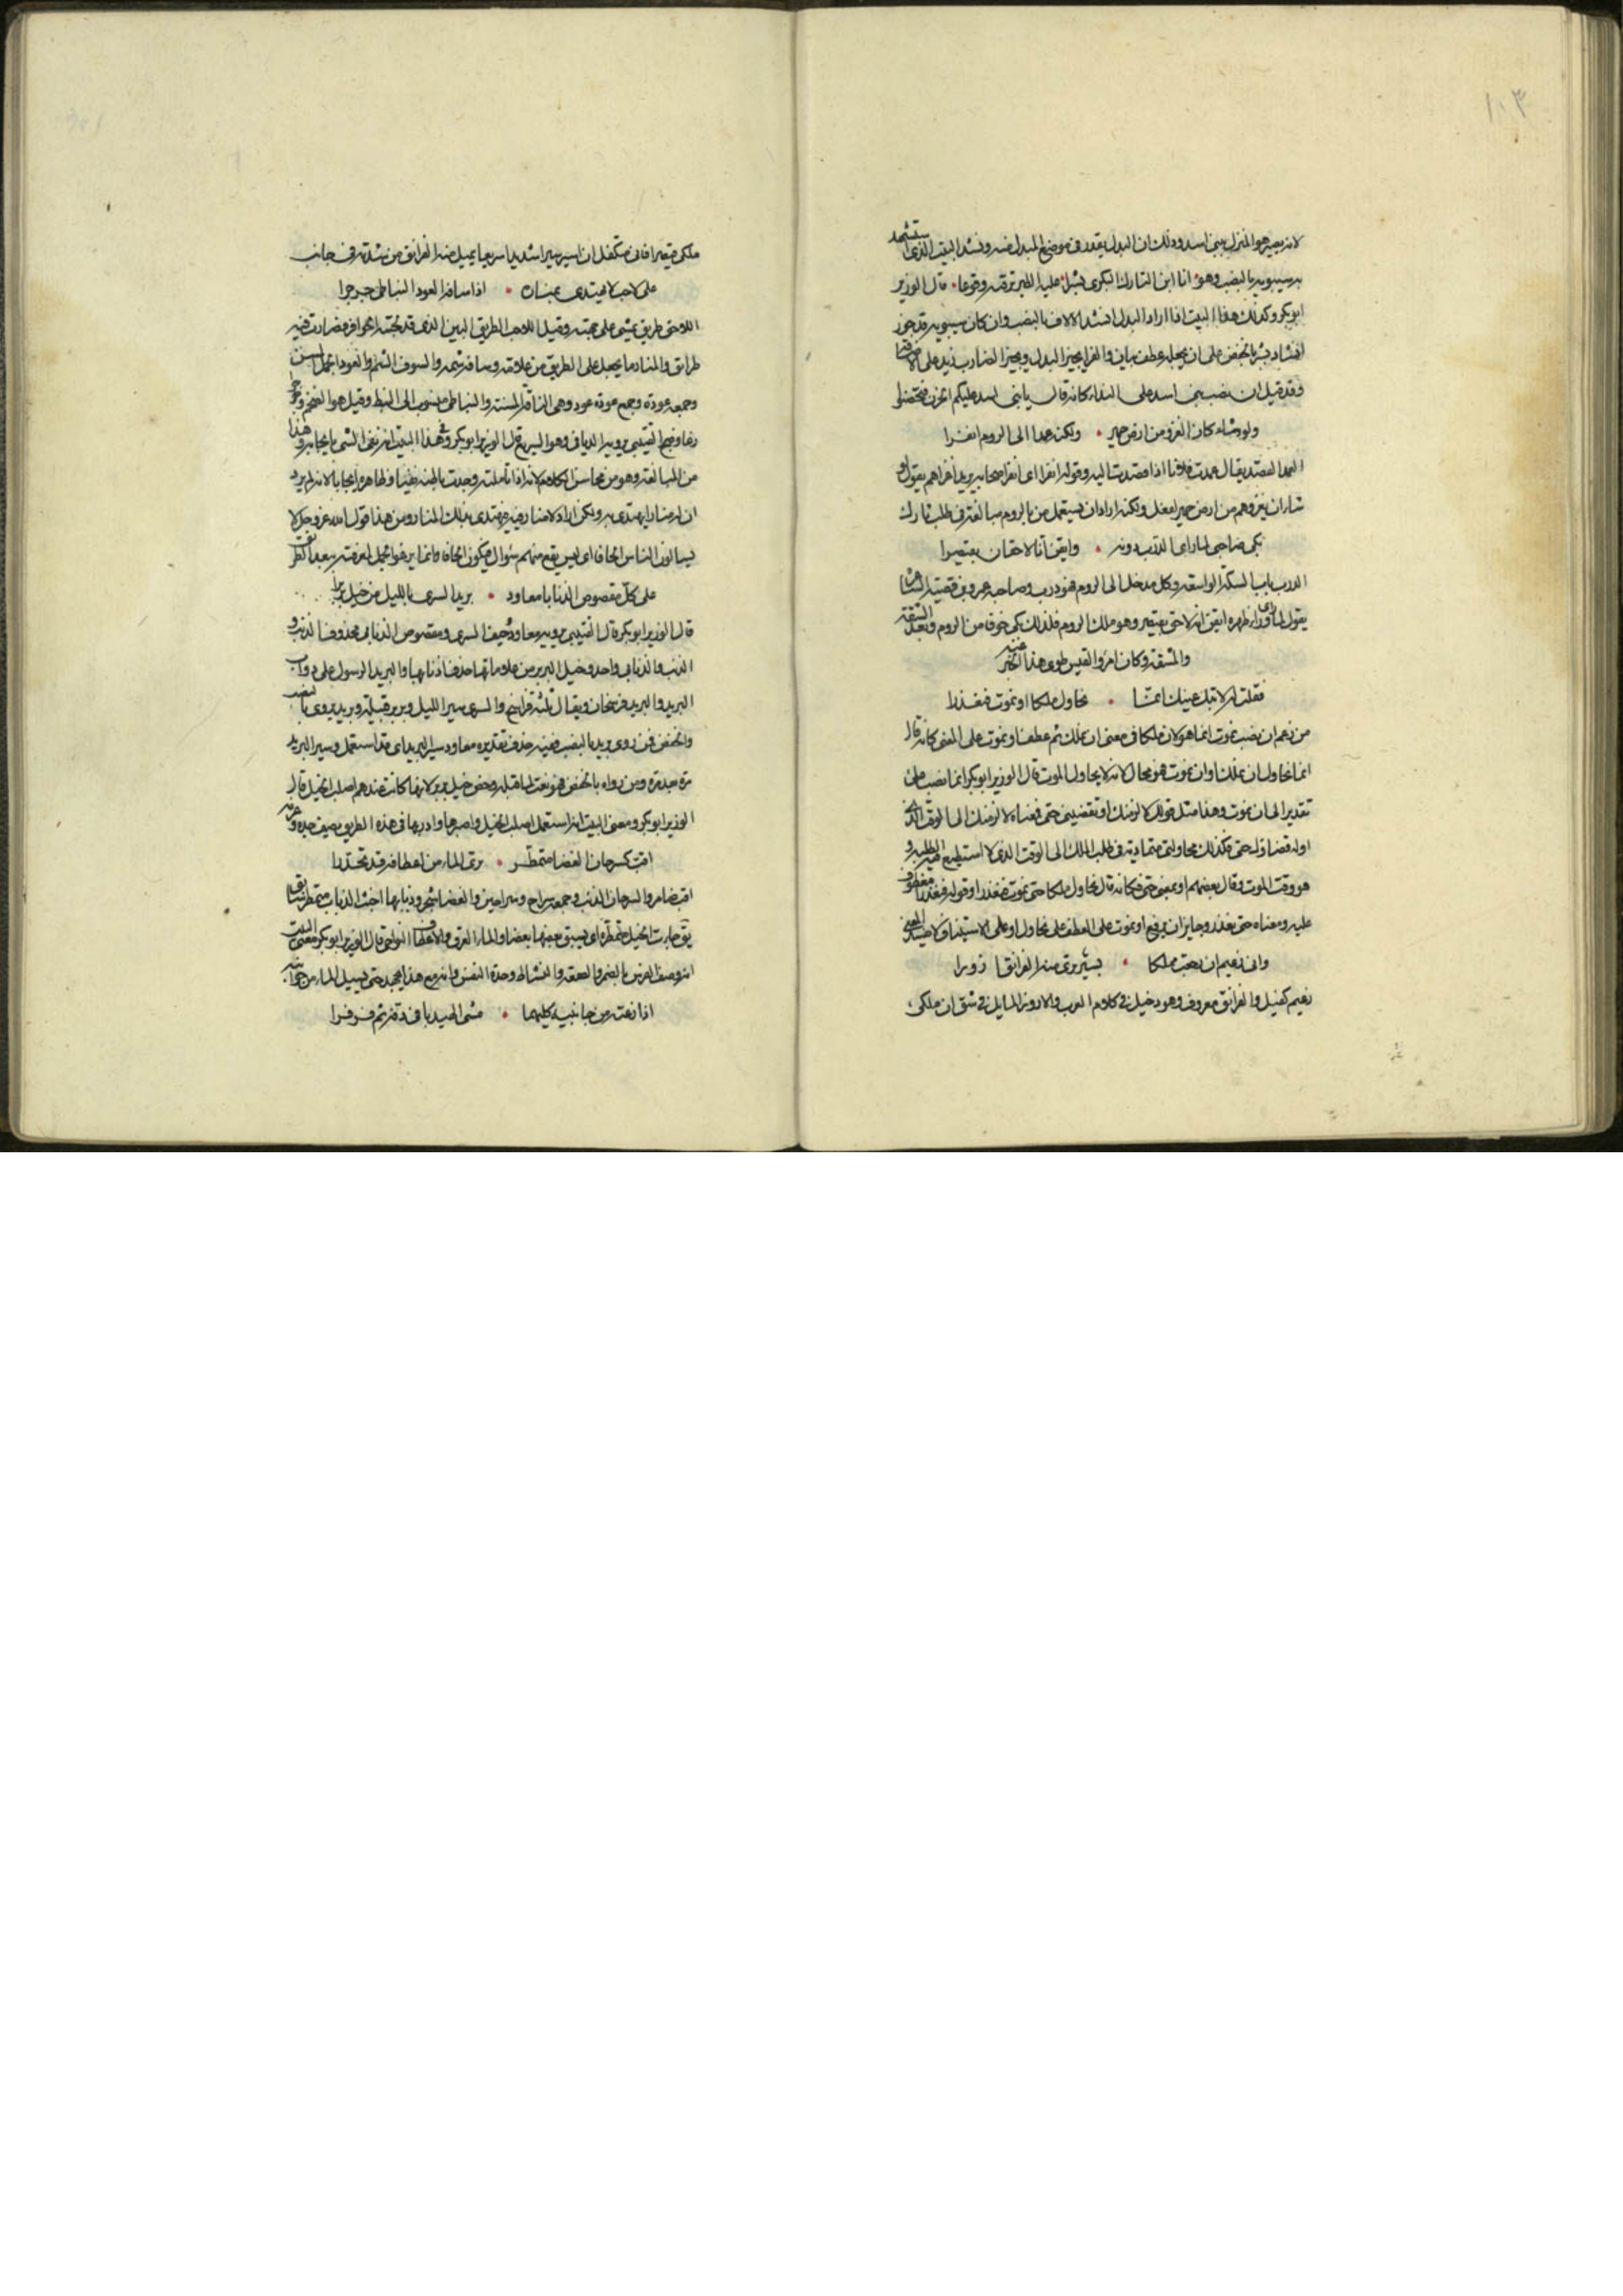 ١٠٣
لانه يصير هو المنزل ببنى اسد وذلك ان البدل يقدر فى موضع المبدل منه ونشد البيت الذى استشهد
به سيبويه بالنصب وهو انا ابن التارك البكرى بشرا عليه الطير ترقبه وقوعا قال الوزير
ابو بكر وكذلك هذا البيت اذا اراد البدل انشد الالاف بالنصب وان كان سيبويه قد جوز
انشاد بشر بالخفض على ان يجعله عطف بيان والفرا يجيز البدل ويجيز الضارب زيد على الاضافة
وقد قيل ان نصب بنى اسد على النداء كانه قال يا بنى اسد عليكم
ولو شاء كان الغزو من ارض حمير • ولكنه عمدا الى الروم انفرا
العمد القصد يقال عمدت فلانا اذا قصدت اليه وقوله انفرا اى انفر اصحابه يريد اغزاهم يقول لو
شاء ان يغزوهم من ارض حمير لفعل ولكنه اراد ان يستعمل من بالروم مبالغة فى طلب ثاره
بكى صاحبى لما راى الدرب دونه • وايقن انا لاحقان بقيصرا
الدرب باب السكة الواسعة وكل مدخل الى الروم فهو درب وصاحبه عمرو بن قميئة الشاعر
يقول لما راى وراء ظهره ايقن انه لاحق بقيصر وهو ملك الروم فلذلك بكى خوفا من الروم وبعد الشقة
والمشقة وكان امرؤ القيس طوى عنه هذا الخبر
فقلت له لا تبك عينك انما • نحاول ملكا او نموت فنعذرا
من زعم ان نصب نموت انما هو لان ملكا فى معنى ان نملك ثم عطف او نموت على المعنى كانه قال
انما نحاول ان نملك او ان نموت فهو محال لانه لا يحاول الموت قال الوزير ابو بكر انما نصب على
تقدير الى ان نموت وهذا مثل قولك لالزمنك او تقضينى حقى فمعناه لالزمنك الى الوقت الذى
اوله قضاؤك حقى وكذلك محاولتى متمادية فى طلب الملك الى الوقت الذى لا استطيع فيه الطلب و
هو وقت الموت وقال بعضهم او بمعنى حتى فكانه قال نحاول ملكا حتى نموت فنعذرا وقوله فنعذرا معطوف
عليه ومعناه حتى نعذر وجايز ان يرفع او نموت على العطف على نحاول او على الاستيناف
وانى زعيم ان رجعت مملكا • بسير ترى منه الفرانق ازورا
زعيم كفيل والفرانق معروف وهو دخيل فى كلام العرب والازور المايل فى شق ان ملكى
ملكى قيصرا فانى متكفل ان اسير سيرا شديدا سريعا يميل منه الفرانق من شدته فى جانب
على لاحب لا يهتدى بمناره • اذا سافه العود النباطى جرجرا
اللاحب طريق يمشى على جهته وقيل اللاحب الطريق البين الذى قد لحبته الحوافر فصارت فيه
طرائق والمنار ما يجعل على الطريق من علامة وسافه شمه والسوف الشم والعود الجمل المسن
وجمعه عودة وجمع عودة عود وهى الناقة المسنة والنباطى منسوب الى النبط وقيل هو الضخم وجرجر
رغا وضج القتيبى يرويه الديافى وهو السريع قال الوزير ابو بكر وفى هذا البيت انه نفى الشى بايجابه وهذا
من المبالغة وهو من محاسن الكلام لانه اذا تاملته وجدت باطنه نفيا وظاهره ايجابا لانه لم يرد
ان له منارا يهتدى به ولكن اراد لا منار فيه فيهتدى بذلك المنار ومن هذا قول الله عز وجل لا
يسالون الناس الحافا اى ليس يقع منهم سؤال فيكون الحافا
على كل مقصوص الذنابا معاود • بريد السرى بالليل من خيل بربرا
قال الوزير ابو بكر قال القتيبى يرويه معاود وجيف السرى ومقصوص الذنابى محذوف الذنب و
الذنب والذنابى واحد وخيل البربر من علاماتها حذف اذنابها والبريد الرسول على دواب
البريد والبريد فرسخان ويقال ثلثة فراسخ والسرى سير الليل وبربر قبيلة وبريد يروى بالنصب
والخفض فمن روى بريد بالنصب ففيه حذف تقديره معاود سير البريد اى قد استعمل فى سير البريد
مرة بعد مرة ومن رواه بالخفض فهو نعت لما قبله وخص خيل بربر لانها كانت عندهم اصلب الخيل قال
الوزير ابو بكر ومعنى البيت انه استعمل اصلب الخيل واصبرها وادربها فى هذه الطريق يصف جده وعزمه
اقب كسرحان الغضا متمطر • ترى الماء من اعطافه قد تحدرا
اقب ضامر والسرحان الذئب وجمعه سراح وسراحين والغضا شجر وذيابها اخبث الذياب متمطر سابق
يق جاءت الخيل متمطرة اى يسبق بعضها بعضا والماء العرق والاعطاف النواحى قال الوزير ابو بكر معنى البيت
انه وصف الفرس بالضمر والصعقة والنشاط وحدة النفس وانه مع هذا يجهد حتى يسيل الماء من جوانبه
اذا زعته من جانبيه كليهما • مشى الهيدبا فى دفه ثم فرفرا